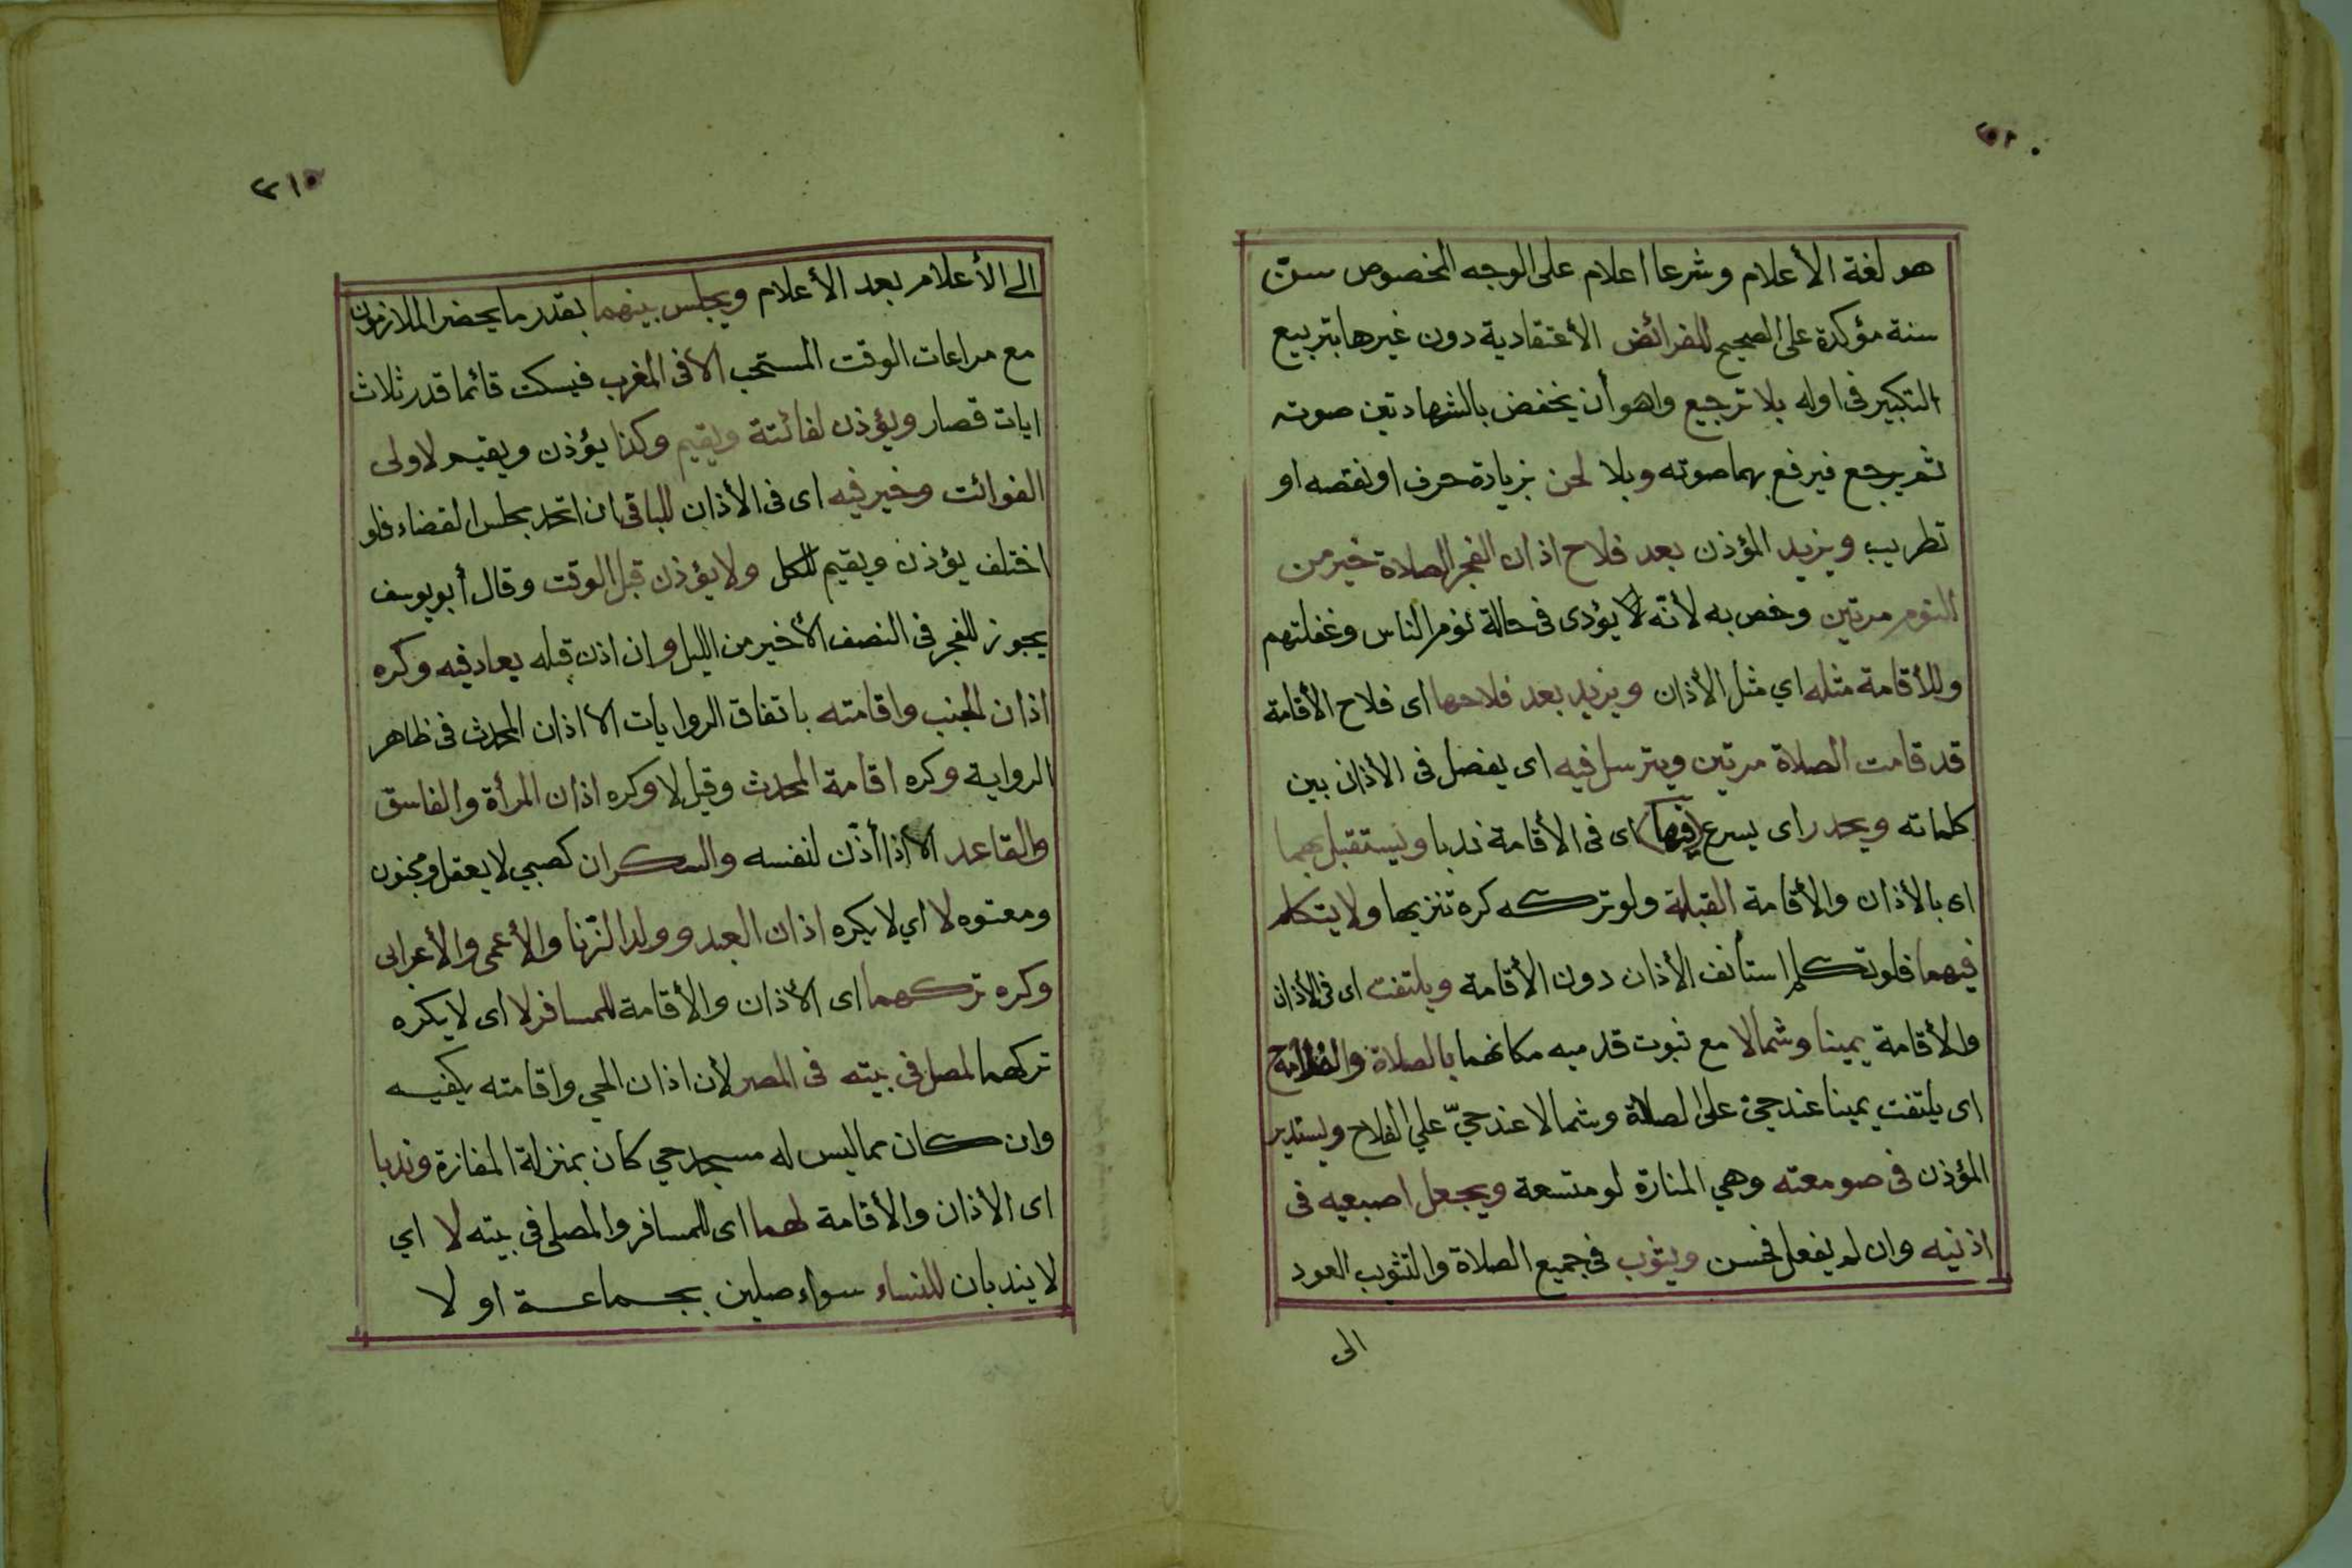 هو لغة الأعلام وشرعا اعلام على الوجه المخصوص سنّ
سنة مؤكدة على الصحيح للفرائض الأعتقادية دون غيرها بتربيع
التكبير فى اوله بلا ترجيع واهو أن يخفض بالشهادتين صوته
ثم يرجع فيرفع بهما صوته وبلا لحن بزيادة حرف او نقصه او
تطريب ويزيد المؤذن بعد فلاح اذان الفجر الصلاة خير من
النوم مرتين وخص به لأنّه لا يؤدى فى حالة نوم الناس وغفلتهم
وللأقامة مثله اي مثل الأذان ويزيد بعد فلاحها اى فلاح الأقامة
قد قامت الصلاة مرتين ويترسل فيه اى يفصل فى الأذان بين
كلماته ويحدر اى يسرع (فيها) اى فى الأقامة ندبا ويستقبل بهما
اى بالأذان والأقامة القبلة ولو تركه كره تنزيها ولا يتكلم
فيهما فلو تكلم استأنف الأذان دون الأقامة ويلتفت اى فى الأذان
والأقامة يمينا وشمالا مع ثبوت قدميه مكانهما بالصلاة والفلاح
اى يلتفت يمينا عند حيّ على الصلاة وشمالا عند حيّ علي الفلاح ويستدير
المؤذن فى صومعته وهي المنارة لو متسعة ويجعل اصبعيه فى
اذنيه وان لم يفعل فحسن ويثوب فى جميع الصلاة والتثويب العود
الى
٢١٥
الى الأعلام بعد الأعلام ويجلس بينهما بقدر ما يحضر الملازمون
مع مراعات الوقت المستحب الا فى المغرب فيسكت قائما قدر ثلاث
ايات قصار ويؤذن لفائتة ويقيم وكذا يؤذن ويقيم لاولى
الفوائت وخير فيه اى فى الأذان للباقى ان اتحد مجلس القضاء فلو
اختلف يؤذن ويقيم للكل ولا يؤذن قبل الوقت وقال أبو يوسف
يجوز للفجر فى النصف الأخير من الليل وان اذن قبله يعاد فيه وكره
اذان الجنب واقامته باتفاق الروايات الا اذان المحدث فى ظاهر
الرواية وكره اقامة المحدث وقيل لا وكره اذان المرأة والفاسق
والقاعد الا اذا أذّن لنفسه والسكران كصبي لا يعقل ومجنون
ومعتوه لا اي لا يكره اذان العبد وولد الزّنا والأعمى والأعرابى
وكره تركهما اى الأذان والأقامة للمسافر لا اى لا يكره
تركهما لمصل فى بيته فى المصر لأن اذان الحي واقامته يكفيه
وان كان مما ليس له مسجد حي كان بمنزلة المفازة وندبا
اى الأذان والأقامة لهما اى للمسافر والمصلى فى بيته لا اي
لا يندبان للنساء سواء صلين بجماعة او لا